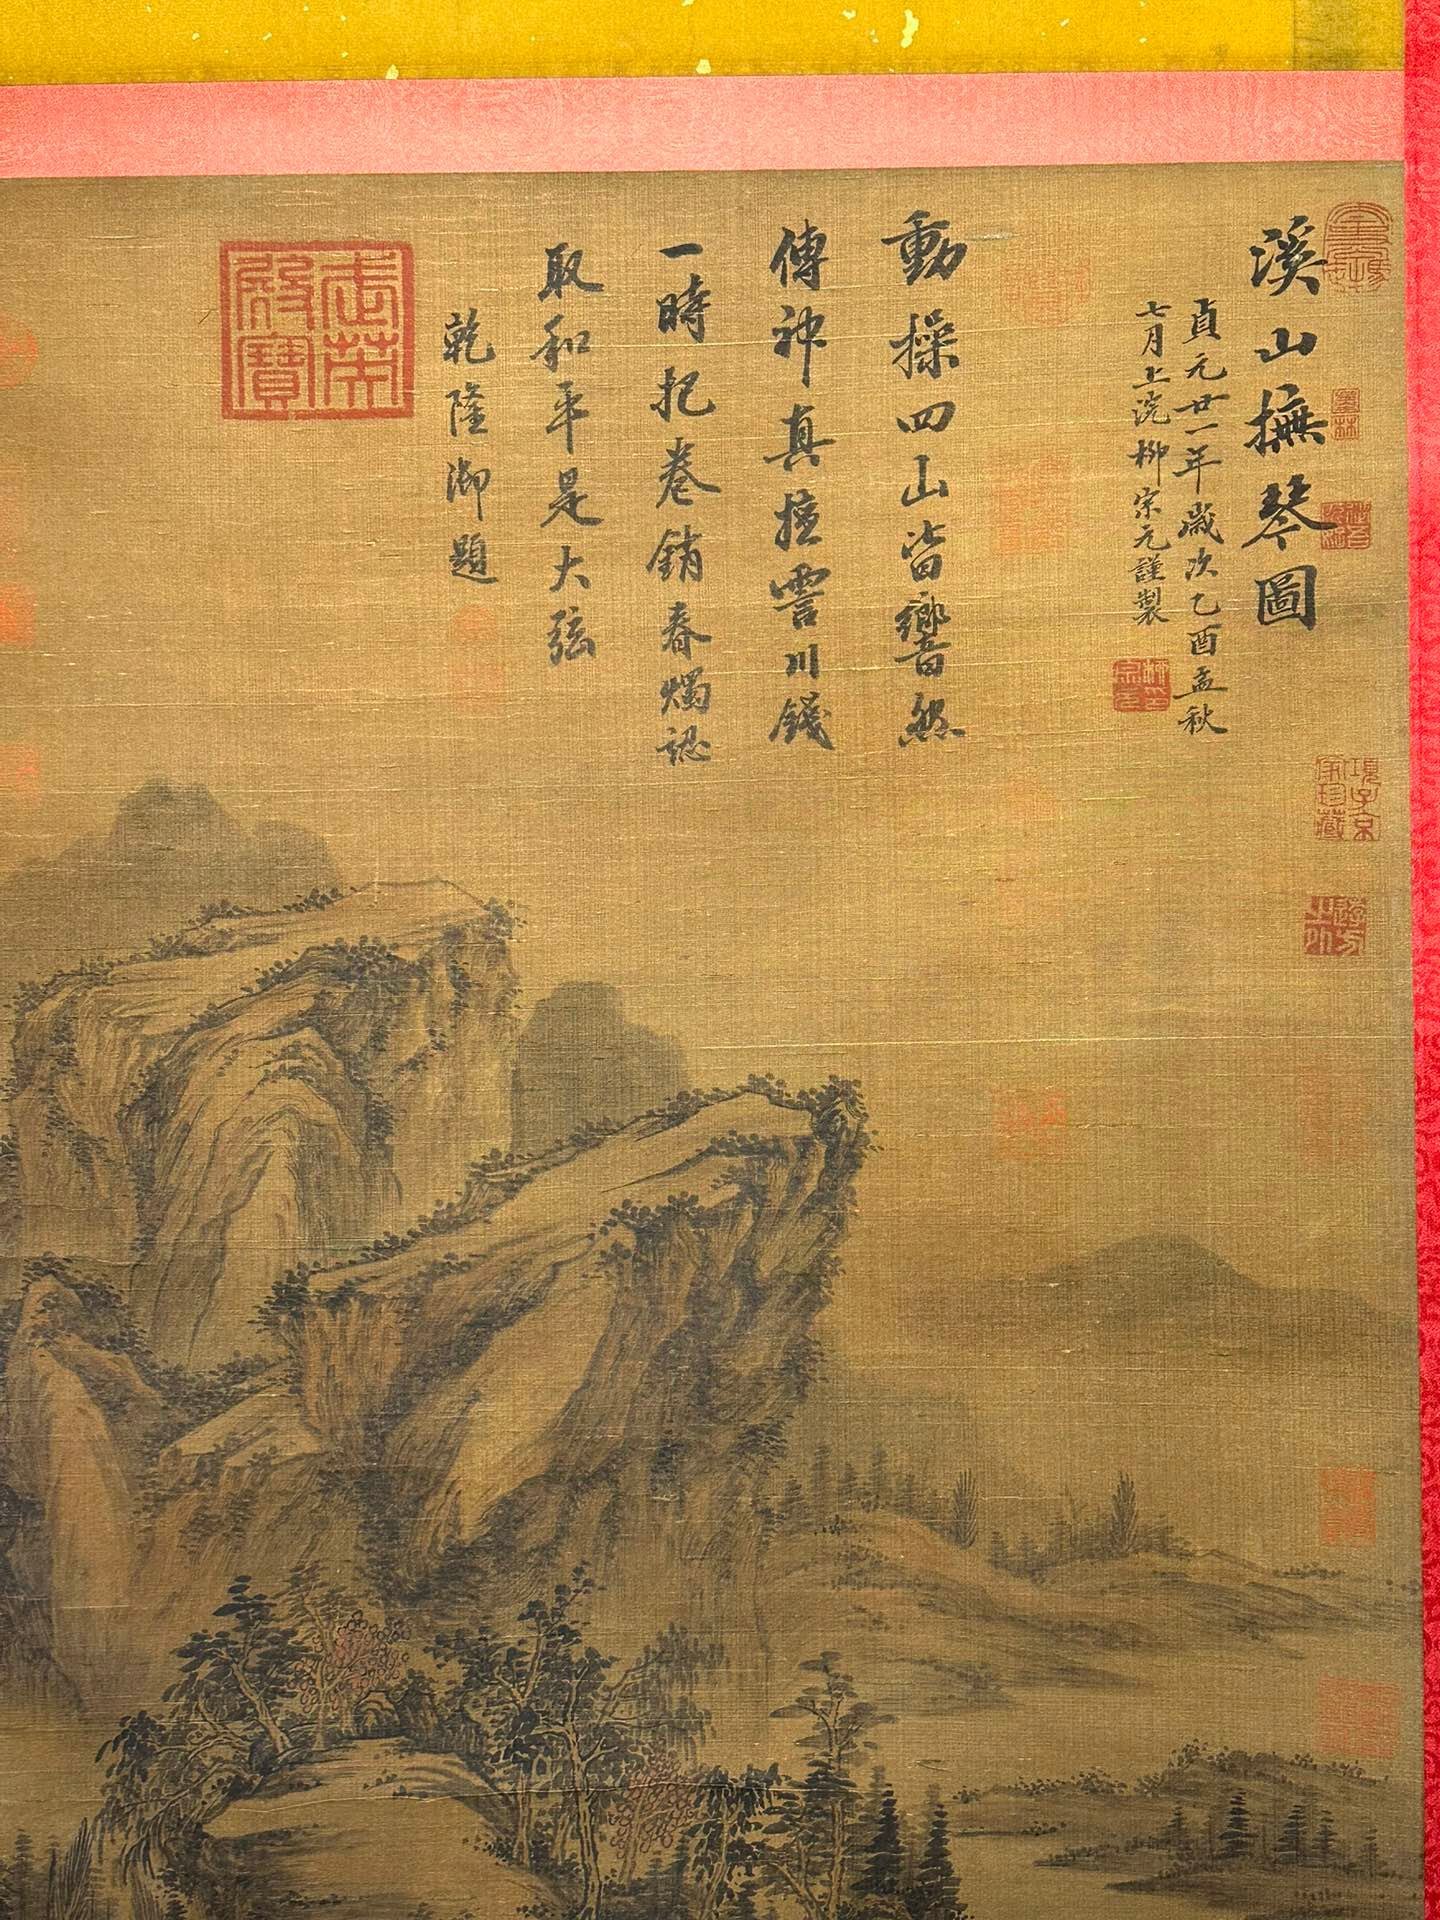 溪山撫琴圖
貞元廿一年歲次乙酉孟秋
七月上浣柳宗元謹製
動操四山皆響然
傳神真擅霅川錢
一時把卷銷春燭認
取和平是大弦
乾隆御題
武英
殿寶
項子京
家珍藏
墨林